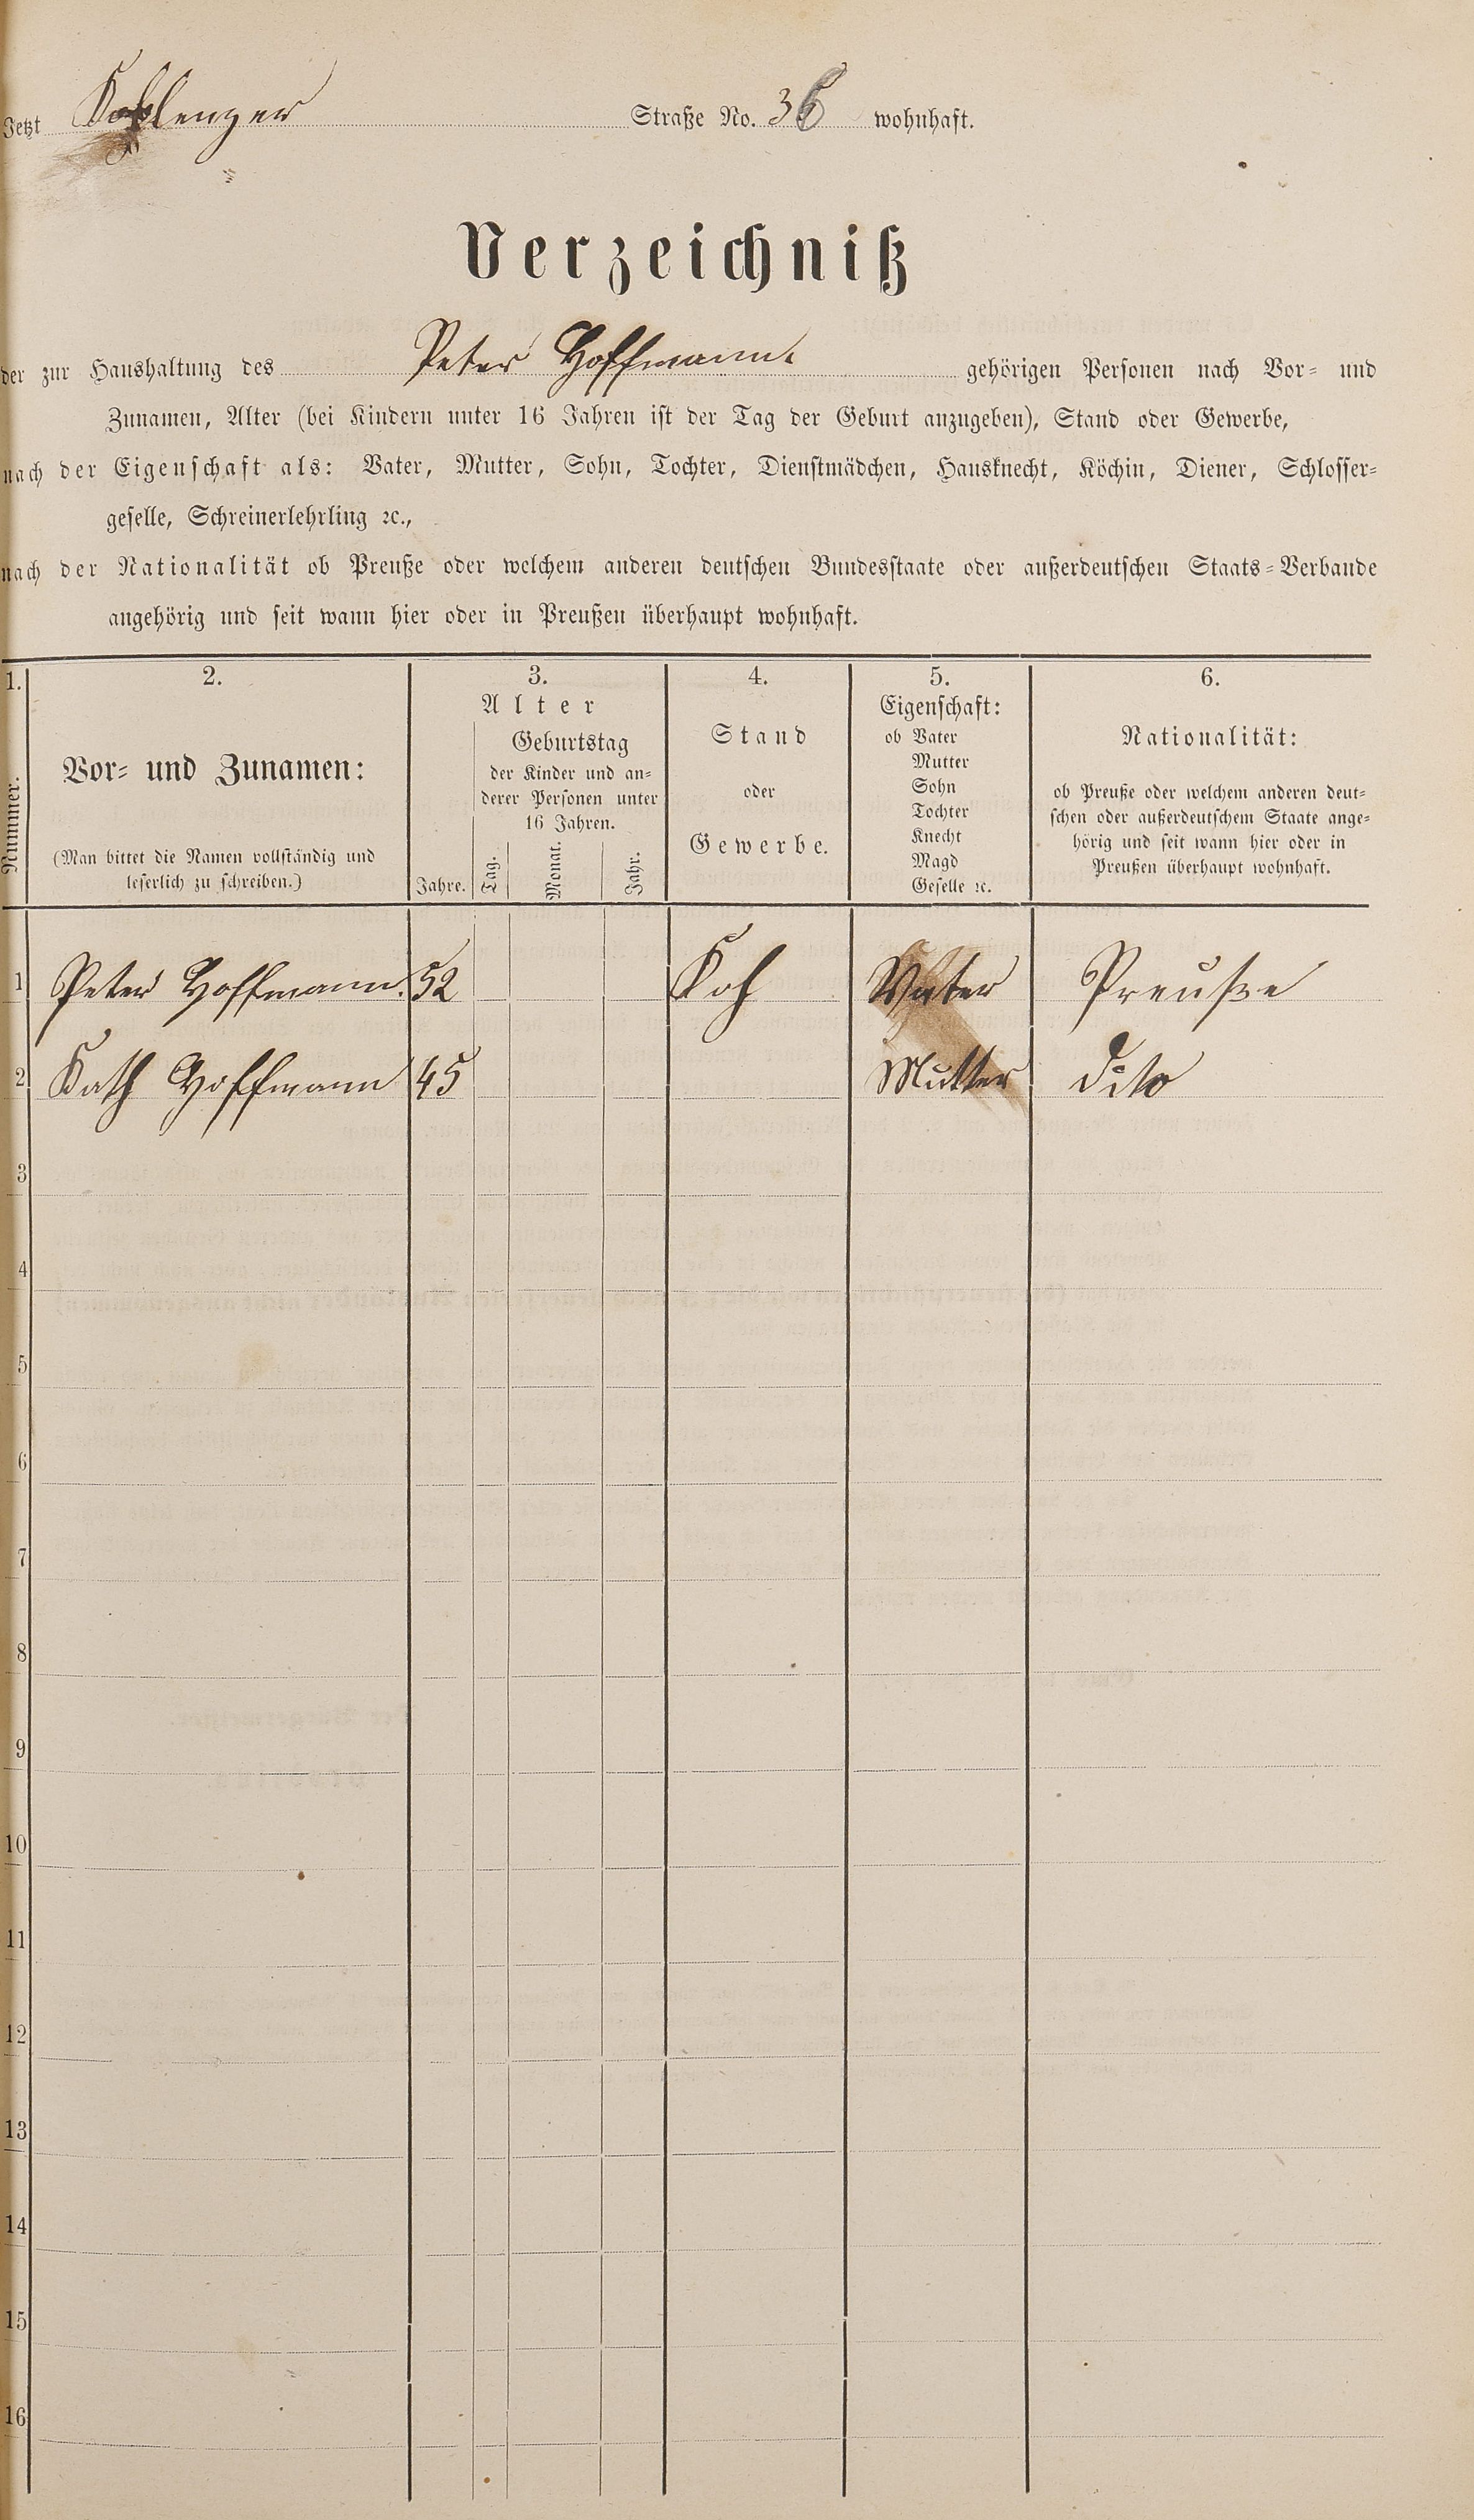 Jetzt Koblenzer Straße No. 36 wohnhaft.
Verzeichniß
der zur Haushaltung des Peter Hoffmann. gehörigen Personen nach Vor- und
Zunamen, Alter (bei Kindern unter 16 Jahren ist der Tag der Geburt anzugeben), Stand oder Gewerbe,
nach der Eigenschaft als: Vater, Mutter, Sohn, Tochter, Dienstmädchen, Hausknecht, Köchin, Diener, Schlosser-
geselle, Schreinerlehrling ꝛc.,
nach der Nationalität ob Preuße oder welchem anderen deutschen Bundesstaate oder außerdeutschen Staats-Verbande
angehörig und seit wann hier oder in Preußen überhaupt wohnhaft.
1. 2. 3. 4. 5. 6.
Nummer.
Vor- und Zunamen:
(Man bittet die Namen vollständig und
leserlich zu schreiben.)
Alter
Geburtstag
der Kinder und an-
derer Personen unter
16 Jahren.
Jahre. Tag. Monat. Jahr.
Stand
oder
Gewerbe.
Eigenschaft:
ob Vater
Mutter
Sohn
Tochter
Knecht
Magd
Geselle ꝛc.
Nationalität:
ob Preuße oder welchem anderen deut-
schen oder außerdeutschem Staate ange-
hörig und seit wann hier oder in
Preußen überhaupt wohnhaft.
1 Peter Hoffmann. 52 Koch Vater Preuße
2 Kath Hoffmann 45 Mutter dito
3
4
5
6
7
8
9
10
11
12
13
14
15
16